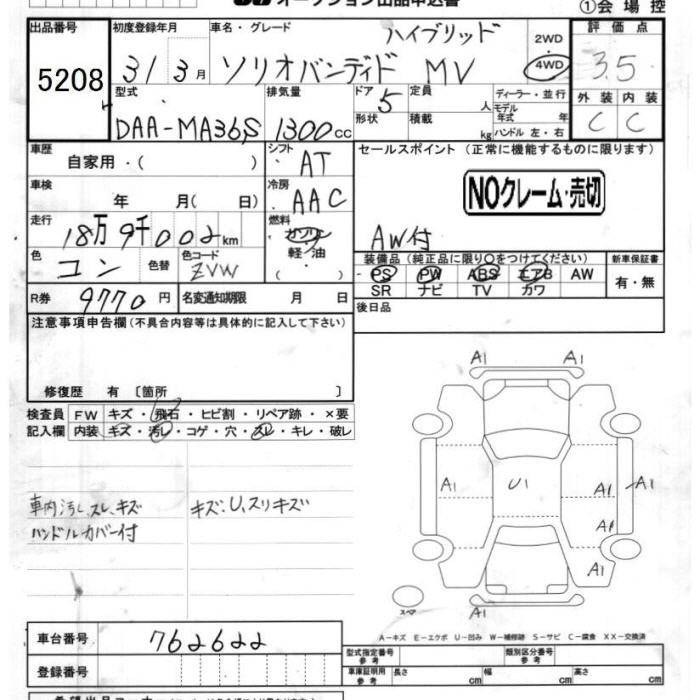 オークション出品申込書
①会場控
出品番号 初度登録年月 車名・グレード ハイブリッド 2WD 4WD 評価点
5208 31 3月 ソリオバンディド MV 3.5
型式 排気量 ドア 5 定員 人 ディーラー・並行 外装 内装
DAA-MA36S 1300cc 形状 積載 kg モデル年式 年 ハンドル 左・右 C C
車歴 自家用・( ) シフト AT セールスポイント (正常に機能するものに限ります)
車検 年 月( 日) 冷房 AAC NOクレーム・売切
走行 18万9千002km 燃料 ガソリン 軽/油 AW付
色 コン 色替 色コード ZVW 装備品(純正品に限り○をつけてください) 新車保証書
PS PW ABS エアB AW 有・無
SR ナビ TV カワ
R券 9770円 名変通知期限 月 日 後日品
注意事項申告欄(不具合内容等は具体的に記入して下さい)
修復歴 有 〔箇所 〕
検査員 FW キズ・飛石・ヒビ割・リペア跡・×要
記入欄 内装 キズ・汚レ・コゲ・穴・スレ・キレ・破レ
車内汚レ、スレ、キズ キズ、U、スリキズ
ハンドルカバー付
A1 A1
A1 U1 A1 A1
A1
A1
A1
スペア
A-キズ E-エクボ U-凹み W-補修跡 S-サビ C-腐食 XX-交換済
車台番号 762622
登録番号
型式指定番号 参考 類別区分番号 参考
車庫証明用 参考 長さ cm 幅 cm 高さ cm